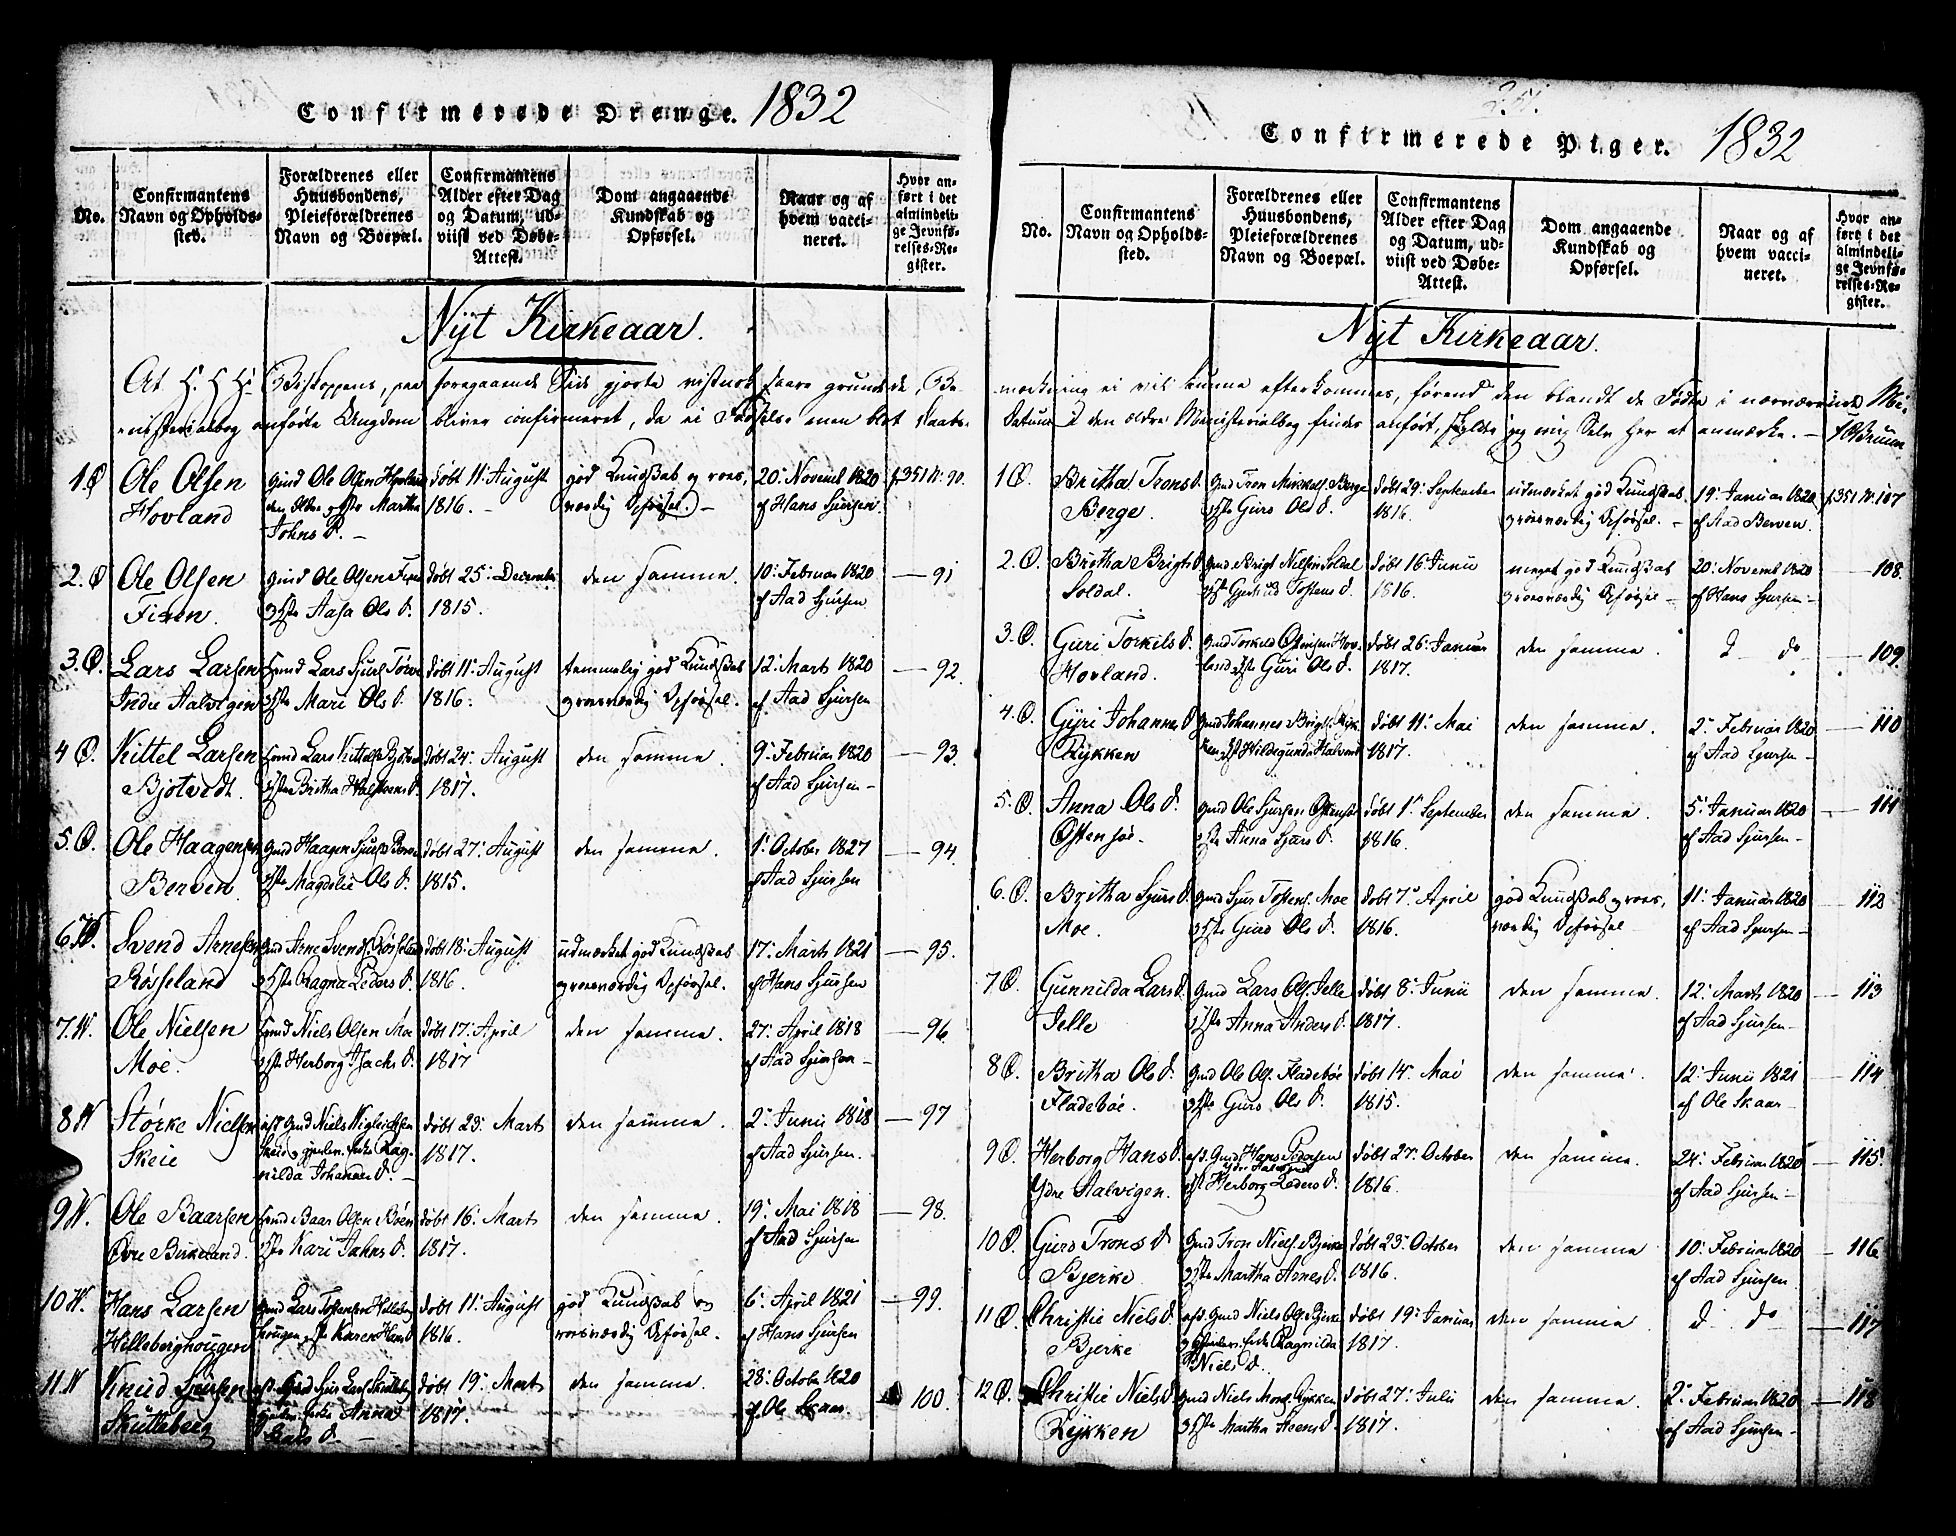 Confirmerede Drenge. 1832
No.
Confirmantens Navn og Opholdssted.
Forældrenes eller Huusbondens, Pleieforældrenes Navn og Boepæl.
Confirmantens Alder efter Dag og Datum, udviist ved Døbe-Attest.
Dom angaaende Kundskab og Opførsel.
Naar og af hvem vaccineret.
Hvor anført i det almindelige Jevnførelses-Register.
Nyt Kirkeaar.
At H. H. Hr Biskoppens, paa foregaaende Side gjorte vistnok saare grundede, Be-
nisterialbog anførte Ungdom bliver confirmeret, da ei Fødsels- men blot Daabs-
1 O Ole Olsen Hovland
Gmd Ole Olsen Hovland den Ældre Martha Johns D. –
døbt 11. August 1816. –
god Kundskab og roesværdig Opførsel. –
20. Novemb 1820 af Hans Sjursen.
p. 351 N. 90.
2. O Ole Olsen
Gmd Ole Olsen Aasa Ols D.
døbt 25. December 1815.
den samme.
10. Februar 1820 af Aad Sjursen
— 91
3. O. Lars Larsen Indre Aalvigen
Lars Sjurs. Mari Ols D.
døbt 11. August 1816.
temmelig god Kundskab og roesværdig Opførsel.
12. Marts 1820 af Aad Sjursen
— 92.
4 O. Kittel Larsen Bjotvedt.
Lars Kittels. Britha D.
døbt 24. August 1817.
den samme.
9. Februar 1820 af Aad Sjursen –
— 93.
5. O. Ole Haagensen Berven
Gmd Haagen Sjurs. Magdeli Ols D.
døbt 27. August 1815.
den samme.
1. October 1827 af Aad Sjursen
— 94.
6. Svend Arnesen Røsseland
Gmd Arne Svends. Røsseland Ragna Peders D.
døbt 18. August 1816.
udmærket god Kundskab og roesværdig Opførsel.
17. Marts 1821 af Hans Sjursen
— 95.
7. V. Ole Nielsen Moe.
Niels Olsen Moe Herborg Isachs D.
døbt 17. April 1817
den samme.
27. April 1818 af Aad Sjursen –
— 96
8 V Størke Nielsen Skeie
afd. Gmd Niels Ragnilda Johannes D. –
døbt 23. Marts 1817.
den samme.
2. Junii 1818 af Aad Sjursen.
— 97
9 V. Ole Baarsen Øvre Birkeland.
Baar Olsen Kari Jahns D.
døbt 16. Marts 1817.
den samme.
19. Mai 1818 af Aad Sjursen
— 98.
10 V. Hans Larsen Hilleberghougen
Gmd Lars Karen Hans D
døbt 11. August 1816.
god Kundskab og roesværdig Opførsel.
6. April 1821 af Hans Sjursen
— 99.
11 V Knud Sjursen Skutleberg
afd. Gmd Sjur Lars. Anna Lars D. –
døbt 19. Marts 1817.
den samme.
28. October 1820 af Ole Skaar.
100.
251.
Confirmerede Piger. 1832
No.
Confirmantens Navn og Opholdssted.
Forældrenes eller Huusbondens, Pleieforældrenes Navn og Boepæl.
Confirmantens Alder efter Dag og Datum, udviist ved Døbe-Attest.
Dom angaaende Kundskab og Opførsel.
Naar og af hvem vaccineret.
Hvor anført i det almindelige Jevnførelses-Register.
Nyt Kirkeaar.
mærkning ei vil kunne efterkommes, førend den blandt de Fødte i nærværende Mi-
Datum i den ældre Ministerialbog findes anført, jeg mig Selv her at anmærke. –
1 O. Britha Trons D. Berge.
Gmd Tron Mikkels. Berge Guro Ols D.
døbt 29. September 1816.
udmærket god Kundskab og roesværdig Opførsel. –
19. Januar 1820. af Aad Berven.
p. 351 N. 107
2. O. Britha Brigts D Soldal.
Gmd Brigt Nielsen Soldal Gjertrud Tostens D.
døbt 16 Junii 1816.
meget god Kundskab og roesværdig Opførsel –
20. Novemb 1820 af Hans Sjursen –
— 108.
3. O. Guri Torkils D. Hovland.
Gmd Torkild Hovland Guri Ols D.
døbt 26. Januar 1817.
den samme.
D do
— 109.
4. O. Gyri Johannes D Rykken
Gmd Johannes Brigts. Hildegunda
døbt 11. Mai 1817.
den samme.
2. Februar 1820 af Aad Sjursen –
— 110
5. O. Anna Ols D. Østensøe.
Gmd Ole Sjursen Østensøe Anna Sjurs D.
døbt 1. September 1816.
den samme.
5. Januar 1820 af Aad Sjursen –
— 111
6. O. Britha Sjurs D. Moe.
Gmd Sjur Tostens. Moe Guro Ols D.
døbt 7. April 1816.
god Kundskab og roesværdig Opførsel
11. Januar 1820 af Aad Sjursen –
— 112
7 O. Gunnilda Lars D. Jelle
Gmd Lars Ols. Jelle Anna Anders D.
døbt 8. Junii 1817.
den samme.
12. Marts 1820 af Aad Sjursen –
— 113
8 O. Britha Ols D. Fladebøe.
Gmd Ole Ols. Fladebøe Guro Ols D.
døbt 14. Mai 1815.
den samme.
12. Junii 1821 af Ole Skaar –
— 114
9 O. Herborg Hans D. Ydre Aalvigen.
afd. Gmd Hans Pedersen Ydre Aalvigen Herborg Peders D.
døbt 27. October 1816.
den samme.
24. Februar 1820 af Aad Sjursen –
— 115.
10 O. Guro Trons D Bjerke.
Gmd Tron Niels. Bjerke Martha Arnes D.
døbt 23. October 1816.
den samme
10. Februar 1820 af Aad Sjursen.
— 116
11 O. Christie Niels D. Bjerke
afd. Gmd Niels Ols. Bjerke Ragnilda Niels D.
døbt 19. Januar 1817.
den samme
D. do
— 117
12 O. Christie Niels D Rykken
Gmd Niels Rykken Martha Steens D.
døbt 27. Julii 1817.
den samme.
2. Februar 1820 af Aad Sjursen –
— 118